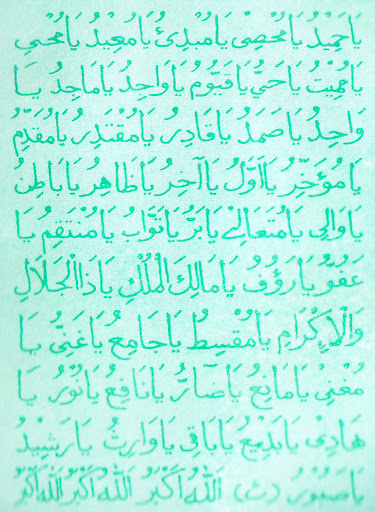 يَاحَمِيْدُ يَامُحْصِيْ يَامُبْدِئُ يَامُعِيْدُ يَامُحْيِيْ
يَامُمِيْتُ يَاحَيُّ يَاقَيُّوْمُ يَاوَاجِدُ يَامَاجِدُ يَا
وَاحِدُ يَاصَمَدُ يَاقَادِرُ يَامُقْتَدِرُ يَامُقَدِّمُ
يَامُؤَخِّرُ يَااَوَّلُ يَاآخِرُ يَاظَاهِرُ يَابَاطِنُ
يَاوَالِيْ يَامُتَعَالِيْ يَابَرُّ يَاتَوَّابُ يَامُنْتَقِمُ يَا
عَفُوُّ يَارَؤُفُ يَامَالِكَ الْمُلْكِ يَاذَاالْجَلَالِ
وَالْاِكْرَامِ يَامُقْسِطُ يَاجَامِعُ يَاغَنِيُّ يَا
مُغْنِيْ يَامَانِعُ يَاضَآرُّ يَانَافِعُ يَانُوْرُ يَا
هَادِيْ يَابَدِيْعُ يَابَاقِيْ يَاوَارِثُ يَارَشِيْدُ
يَاصَبُوْرُ (ث) اَللهُ اَكْبَرُ اَللهُ اَكْبَرُ اَللهُ اَكْبَرُ